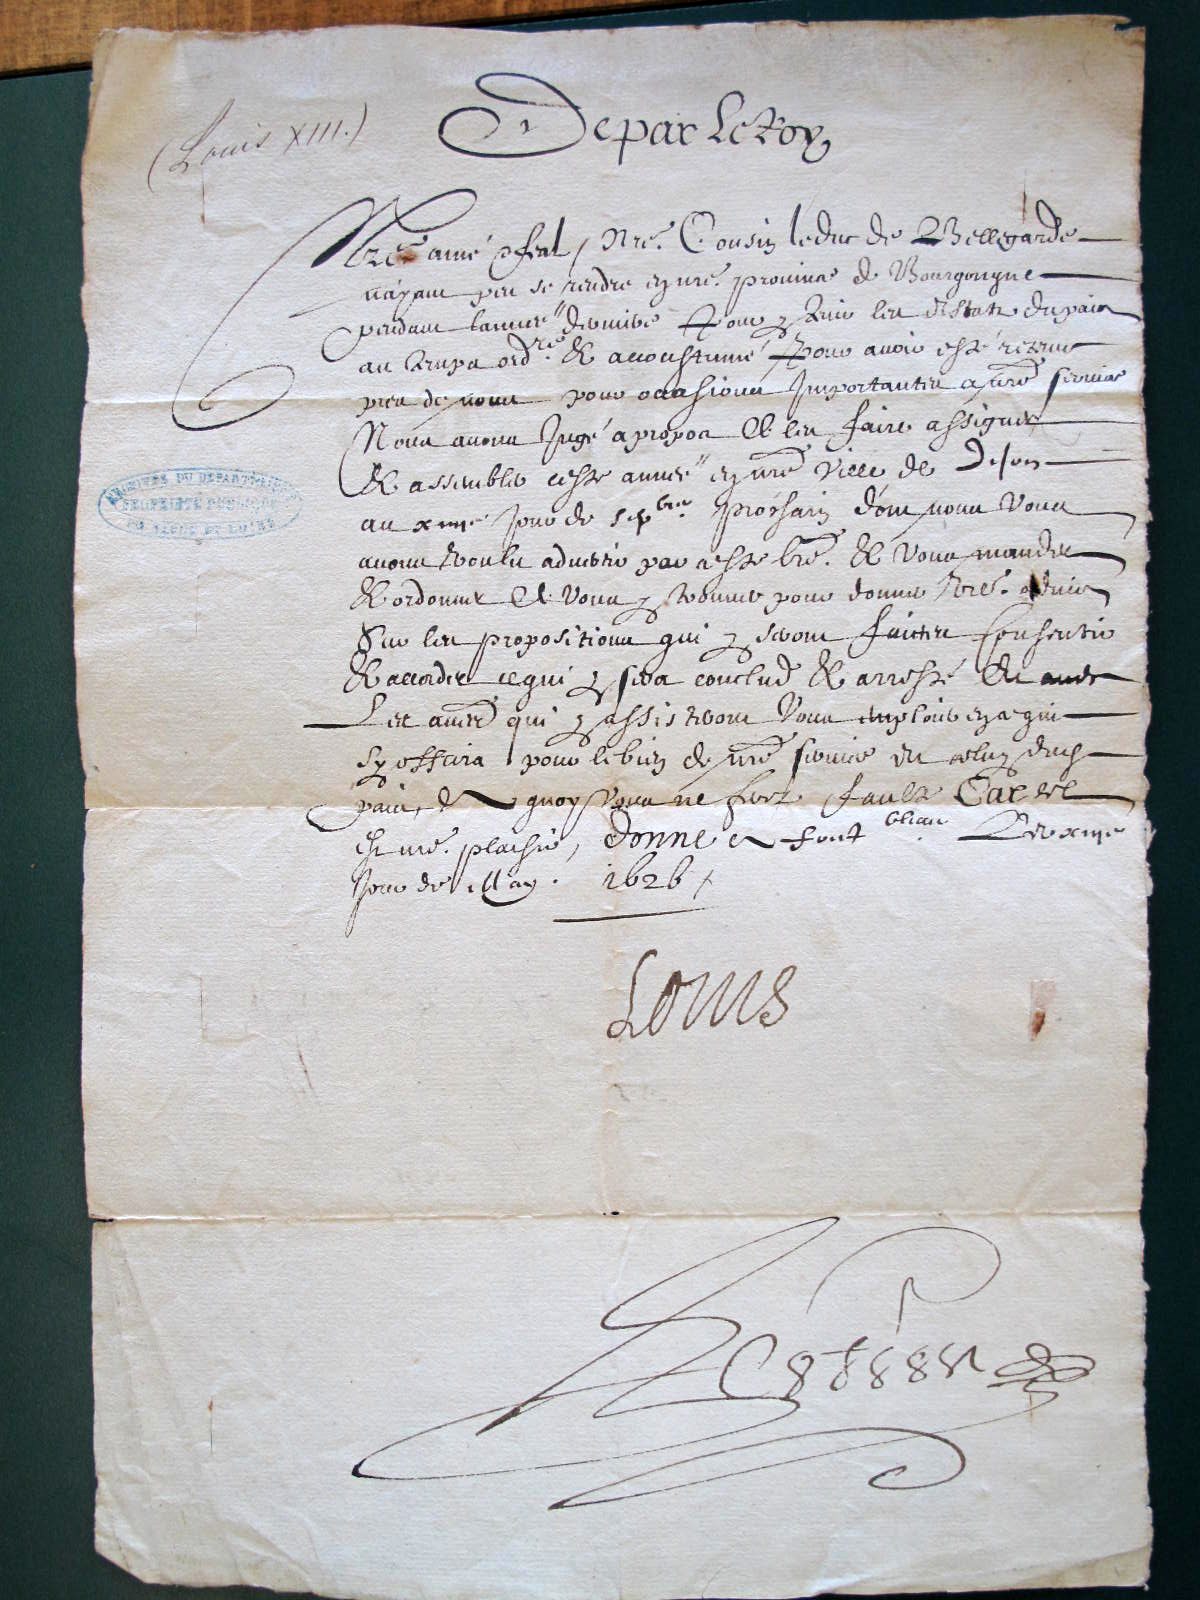 (Louis XIII.)
De par Le Roy,
Nre amé & feal, Nre. Cousin le duc de Bellegarde
n'ayant peu se rendre en nre. province de Bourgongne
pendant l'annee derniere pour y tenir les Estatz du pais
au temps ordre & accoustumé pour avoir esté retenu
pres de nous pour occasions Importantes a nre service
Nous avons Jugé a propos de les faire assigner
& assembler ceste annee en nre ville de Dijon
au xiiiie jour de Sepbre prochain dont nous vous
avons voulu advertir par ceste lre. & vous mander
& ordonner de vous y trouver pour donner vre. advis
Sur les propositions qui y seront faictes Consentir
& accorder ce qui y sera conclud & arresté &
Les autres qui y assisteront vous employer en ce qui
s'y offrira pour le bien de nre service et celuy dud
pais, & a quoy vous ne ferez faulte Car tel
est nre. plaisir, donne a Font bleau. Le xiiie
jour de May. 1626
Louis
ARCHIVES DU DÉPARTEMENT
PROPRIÉTÉ PUBLIQUE
DE SAÔNE ET LOIRE